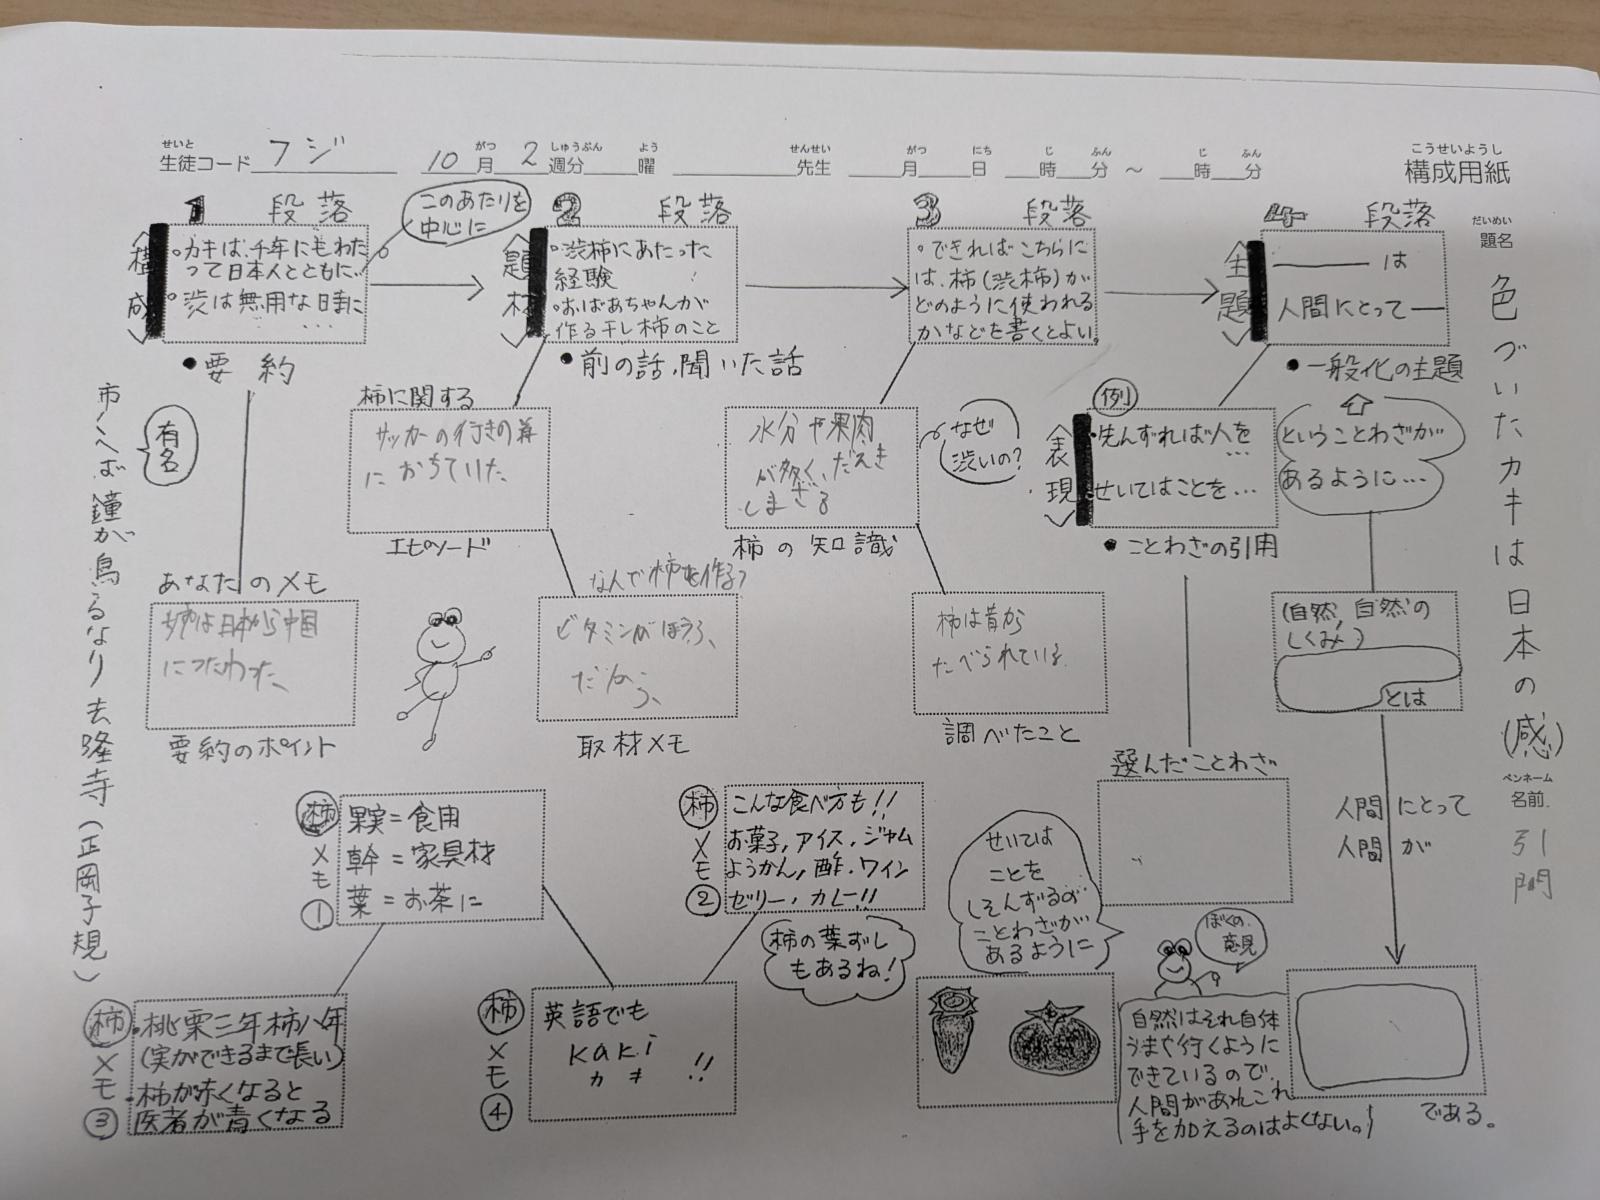 せいと
生徒コード フジ
10 月 2 週分 曜
がつ しゅうぶん よう
先生
せんせい
月 日 時 分 ～ 時 分
がつ にち じ ふん じ ふん
こうせいようし
構成用紙
だいめい
題名
色づいたカキは日本の(感)
ペンネーム
名前
引門
1 段落
〈構成〉
・カキは、千年にもわた
って日本人とともに…
・渋は無用な日時に
…
このあたりを
中心に
●要約
あなたのメモ
柿は日本から中国
につたわった、
要約のポイント
有名
市にへば鐘が鳥るなり去隆寺(正岡子規)
2 段落
〈題材〉
・渋柿にあたった
経験
・おばあちゃんが
作る干し柿のこと
●前の話、聞いた話
柿に関する
サッカーの行きの
におちていた
エピソード
なんで柿を作る?
ビタミンがほうふ、
取材メモ
3 段落
・できればこちらに
は、柿(渋柿)が
どのように使われる
かなどを書くとよい。
水分や果肉
が多く、だえき
しまざる
柿の知識
なぜ
渋いの?
柿は昔から
たべられている
調べたこと
4 段落
〈主題〉
――― は
人間にとって―
●一般化の主題
例
〈表現〉
・先んずれば人を
…
せいてはことを…
●ことわざの引用
ということわざが
あるように…
選んだことわざ
(自然、自然の
しくみ)
とは
人間にとって
人間が
である。
柿メモ①
果実=食用
幹=家具材
葉=お茶に
柿メモ②
こんな食べ方も!!
お菓子,アイス,ジャム
ようかん,酢・ワイン
ゼリー・カレー!!
柿の葉ずし
もあるね!
柿メモ③
・桃栗三年柿八年
(実ができるまで長い)
・柿が赤くなると
医者が青くなる
柿メモ④
英語でも
kaki
カキ !!
せいては
ことを
しそんずるの
ことわざが
あるように
ぼくの
意見
自然はそれ自体
うまく行くように
できているので、
人間があれこれ
手を加えるのはよくない。